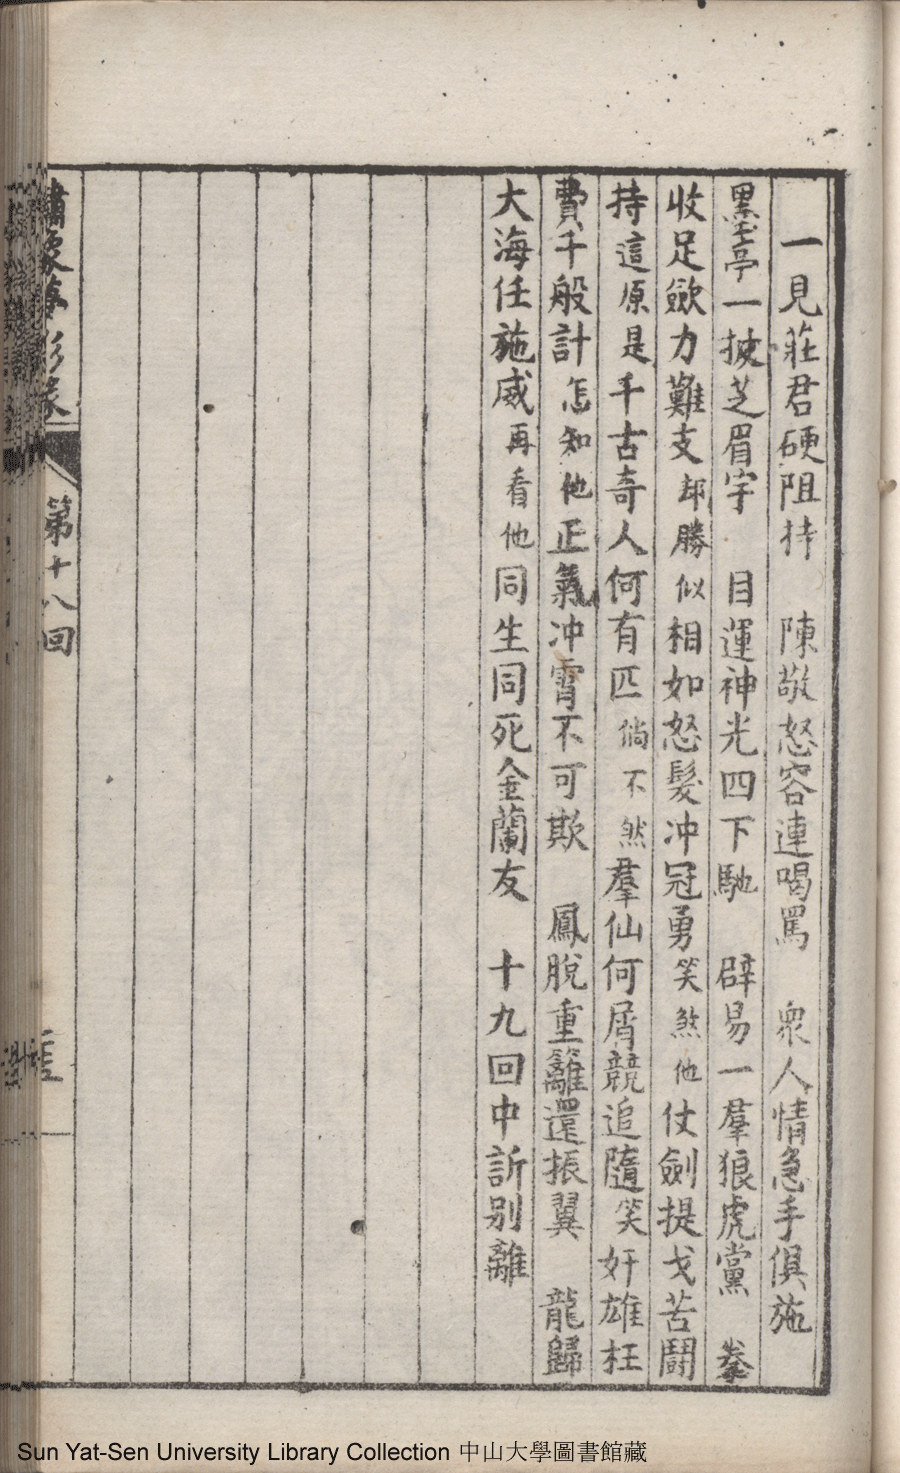 一見莊君硬阻持　陳敬怒容連喝罵　衆人情急手俱施
墨亭一披芝眉宇　目運神光四下馳　辟易一羣狼虎黨　拳
收足歛力難支却勝似相如怒髮冲冠勇笑煞他仗劍提戈苦鬪
持這原是千古奇人何有匹倘不然羣仙何屑競追隨笑奸雄枉
費千般計怎知他正氣冲霄不可欺　鳳脫重籬還振翼　龍歸
大海任施威再看他同生同死金蘭友　十九回中訴別離
繡像夢影緣
第十八回
Sun Yat-Sen University Library Collection 中山大學圖書館藏